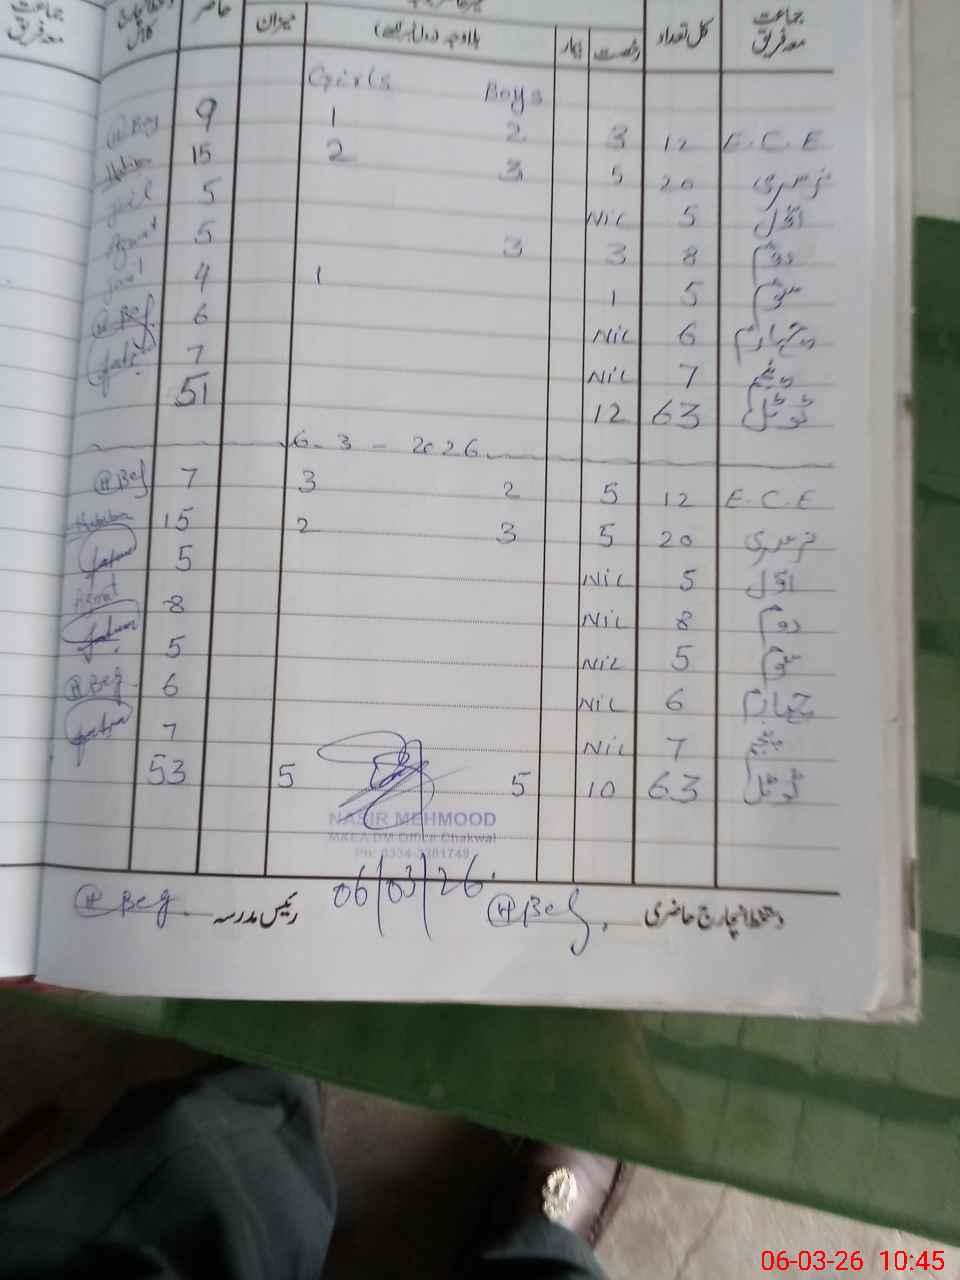 جماعت معہ فریق کل تعداد رخصت بیمار بلاوجہ میزان حاضر جماعت معہ فریق
Boys Girls
E.C.E 12 3 2 1 9 @Beg
نرسری 20 5 3 2 15
اوّل 5 Nil 5
دوم 8 3 3 5 Azmat
سوم 5 1 1 4
چہارم 6 Nil 6 @Beg
پنجم 7 Nil 7
ٹوٹل 63 12 51
6-3-2026
E.C.E 12 5 2 3 7 @Beg
نرسری 20 5 3 2 15
اوّل 5 Nil 5
دوم 8 Nil 8 Azmat
سوم 5 Nil 5
چہارم 6 Nil 6 @Beg
پنجم 7 Nil 7
ٹوٹل 63 10 5 5 53
NASIR MEHMOOD
MKEA DM Office Chakwal
06/03/26
دستخط انچارج حاضری @Beg رئیس مدرسہ @Beg
06-03-26 10:45